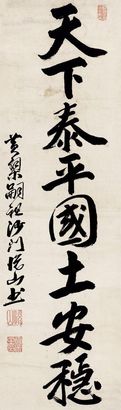 天下泰平國土安穩
黃檗嗣祖沙門悅山書